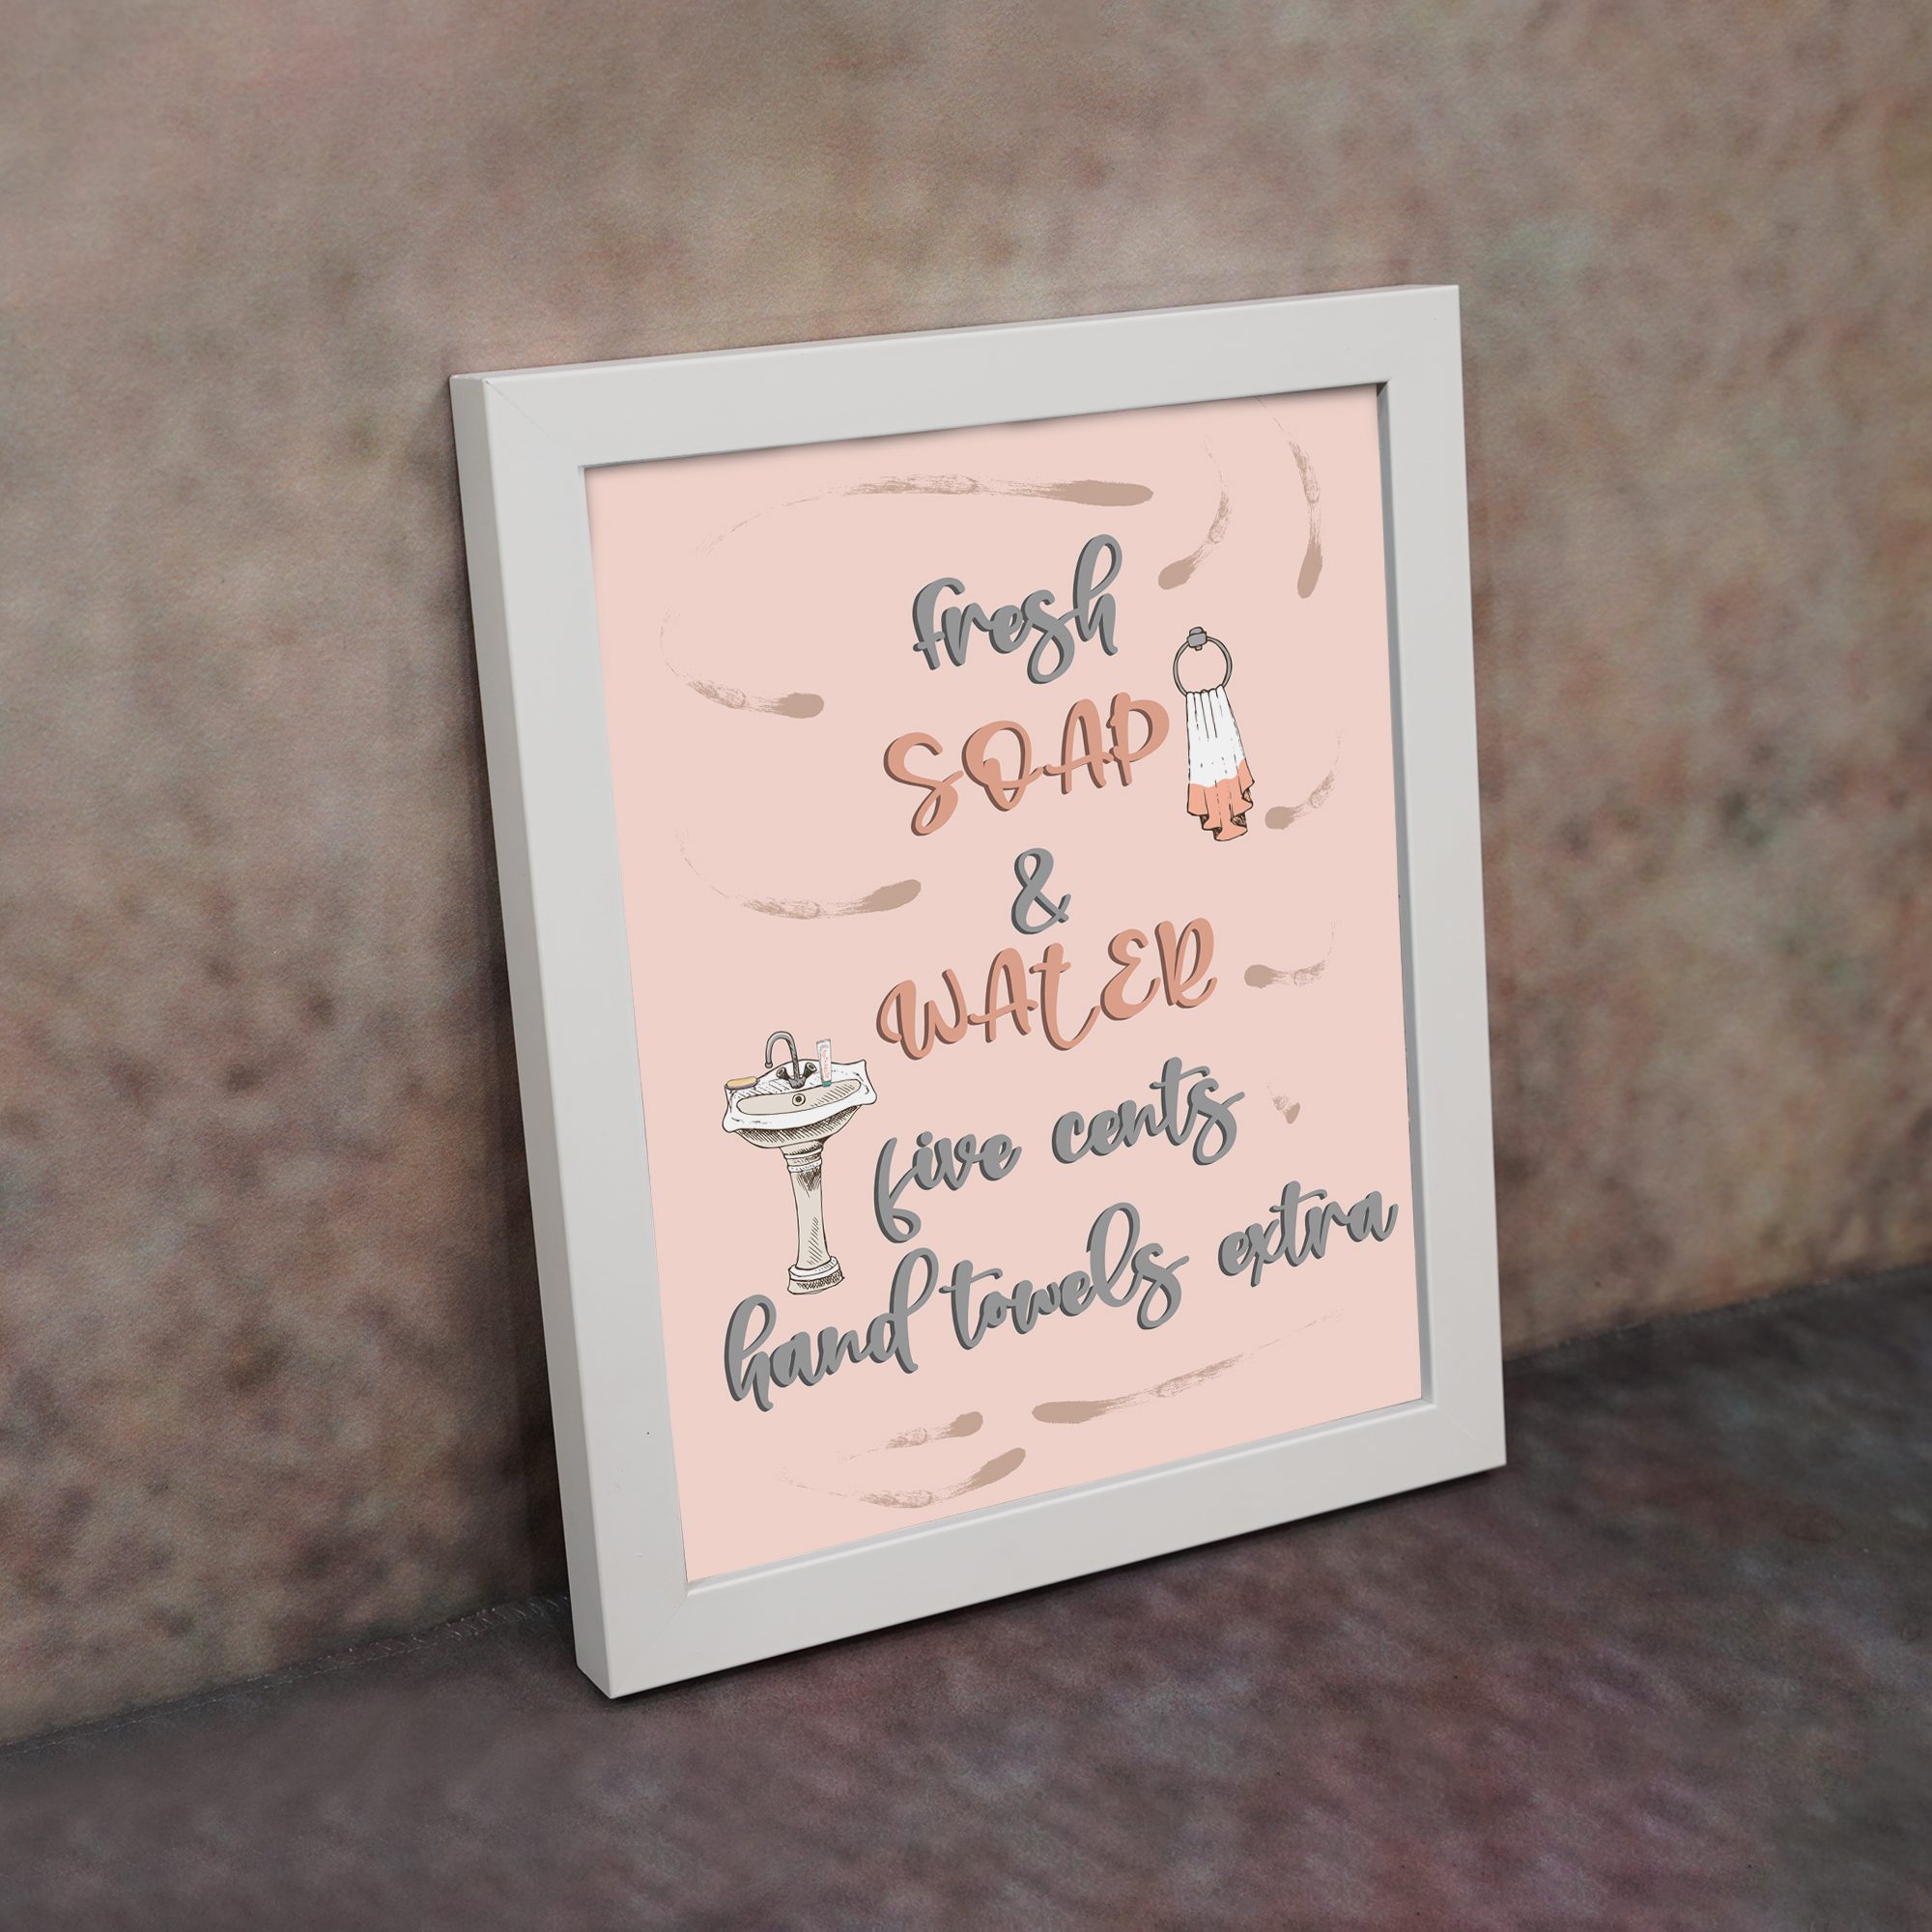 fresh
SOAP
&
WAtER
five cents
hand towels extra